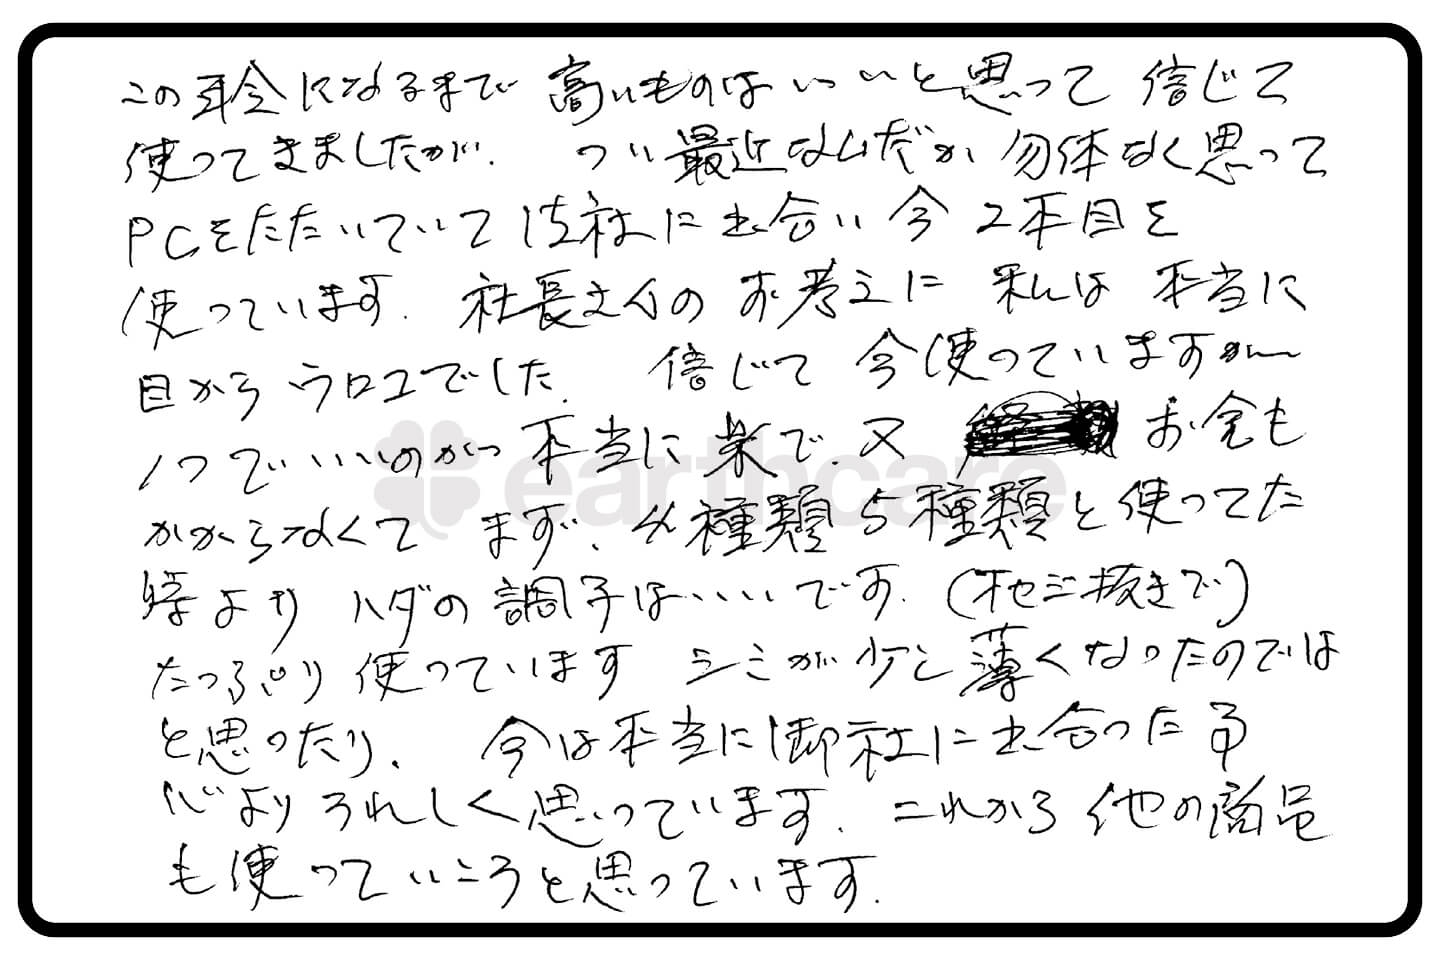 この年令になるまで 高いものはいいと思って 信じて
使ってきましたが. つい最近なんだか 勿体なく思って
PCをたたいていて 御社に出合い 今 2本目を
使っています. 社長さんの お考えに 私は 本当に
目から ウロコでした. 信じて 今使っていますが〜
1つで いいのがつ 本当に 楽で. 又 お金も
かからなくて ます. 4種類 5種類と使ってた
時より ハダの調子はいいです. (オセジ抜きで)
たっぷり 使っています シミが少し薄くなったのでは
と思ったり. 今は本当に御社に出合った事
心より うれしく思っています. これから 他の商品
も使っていこうと思っています.
earthcare